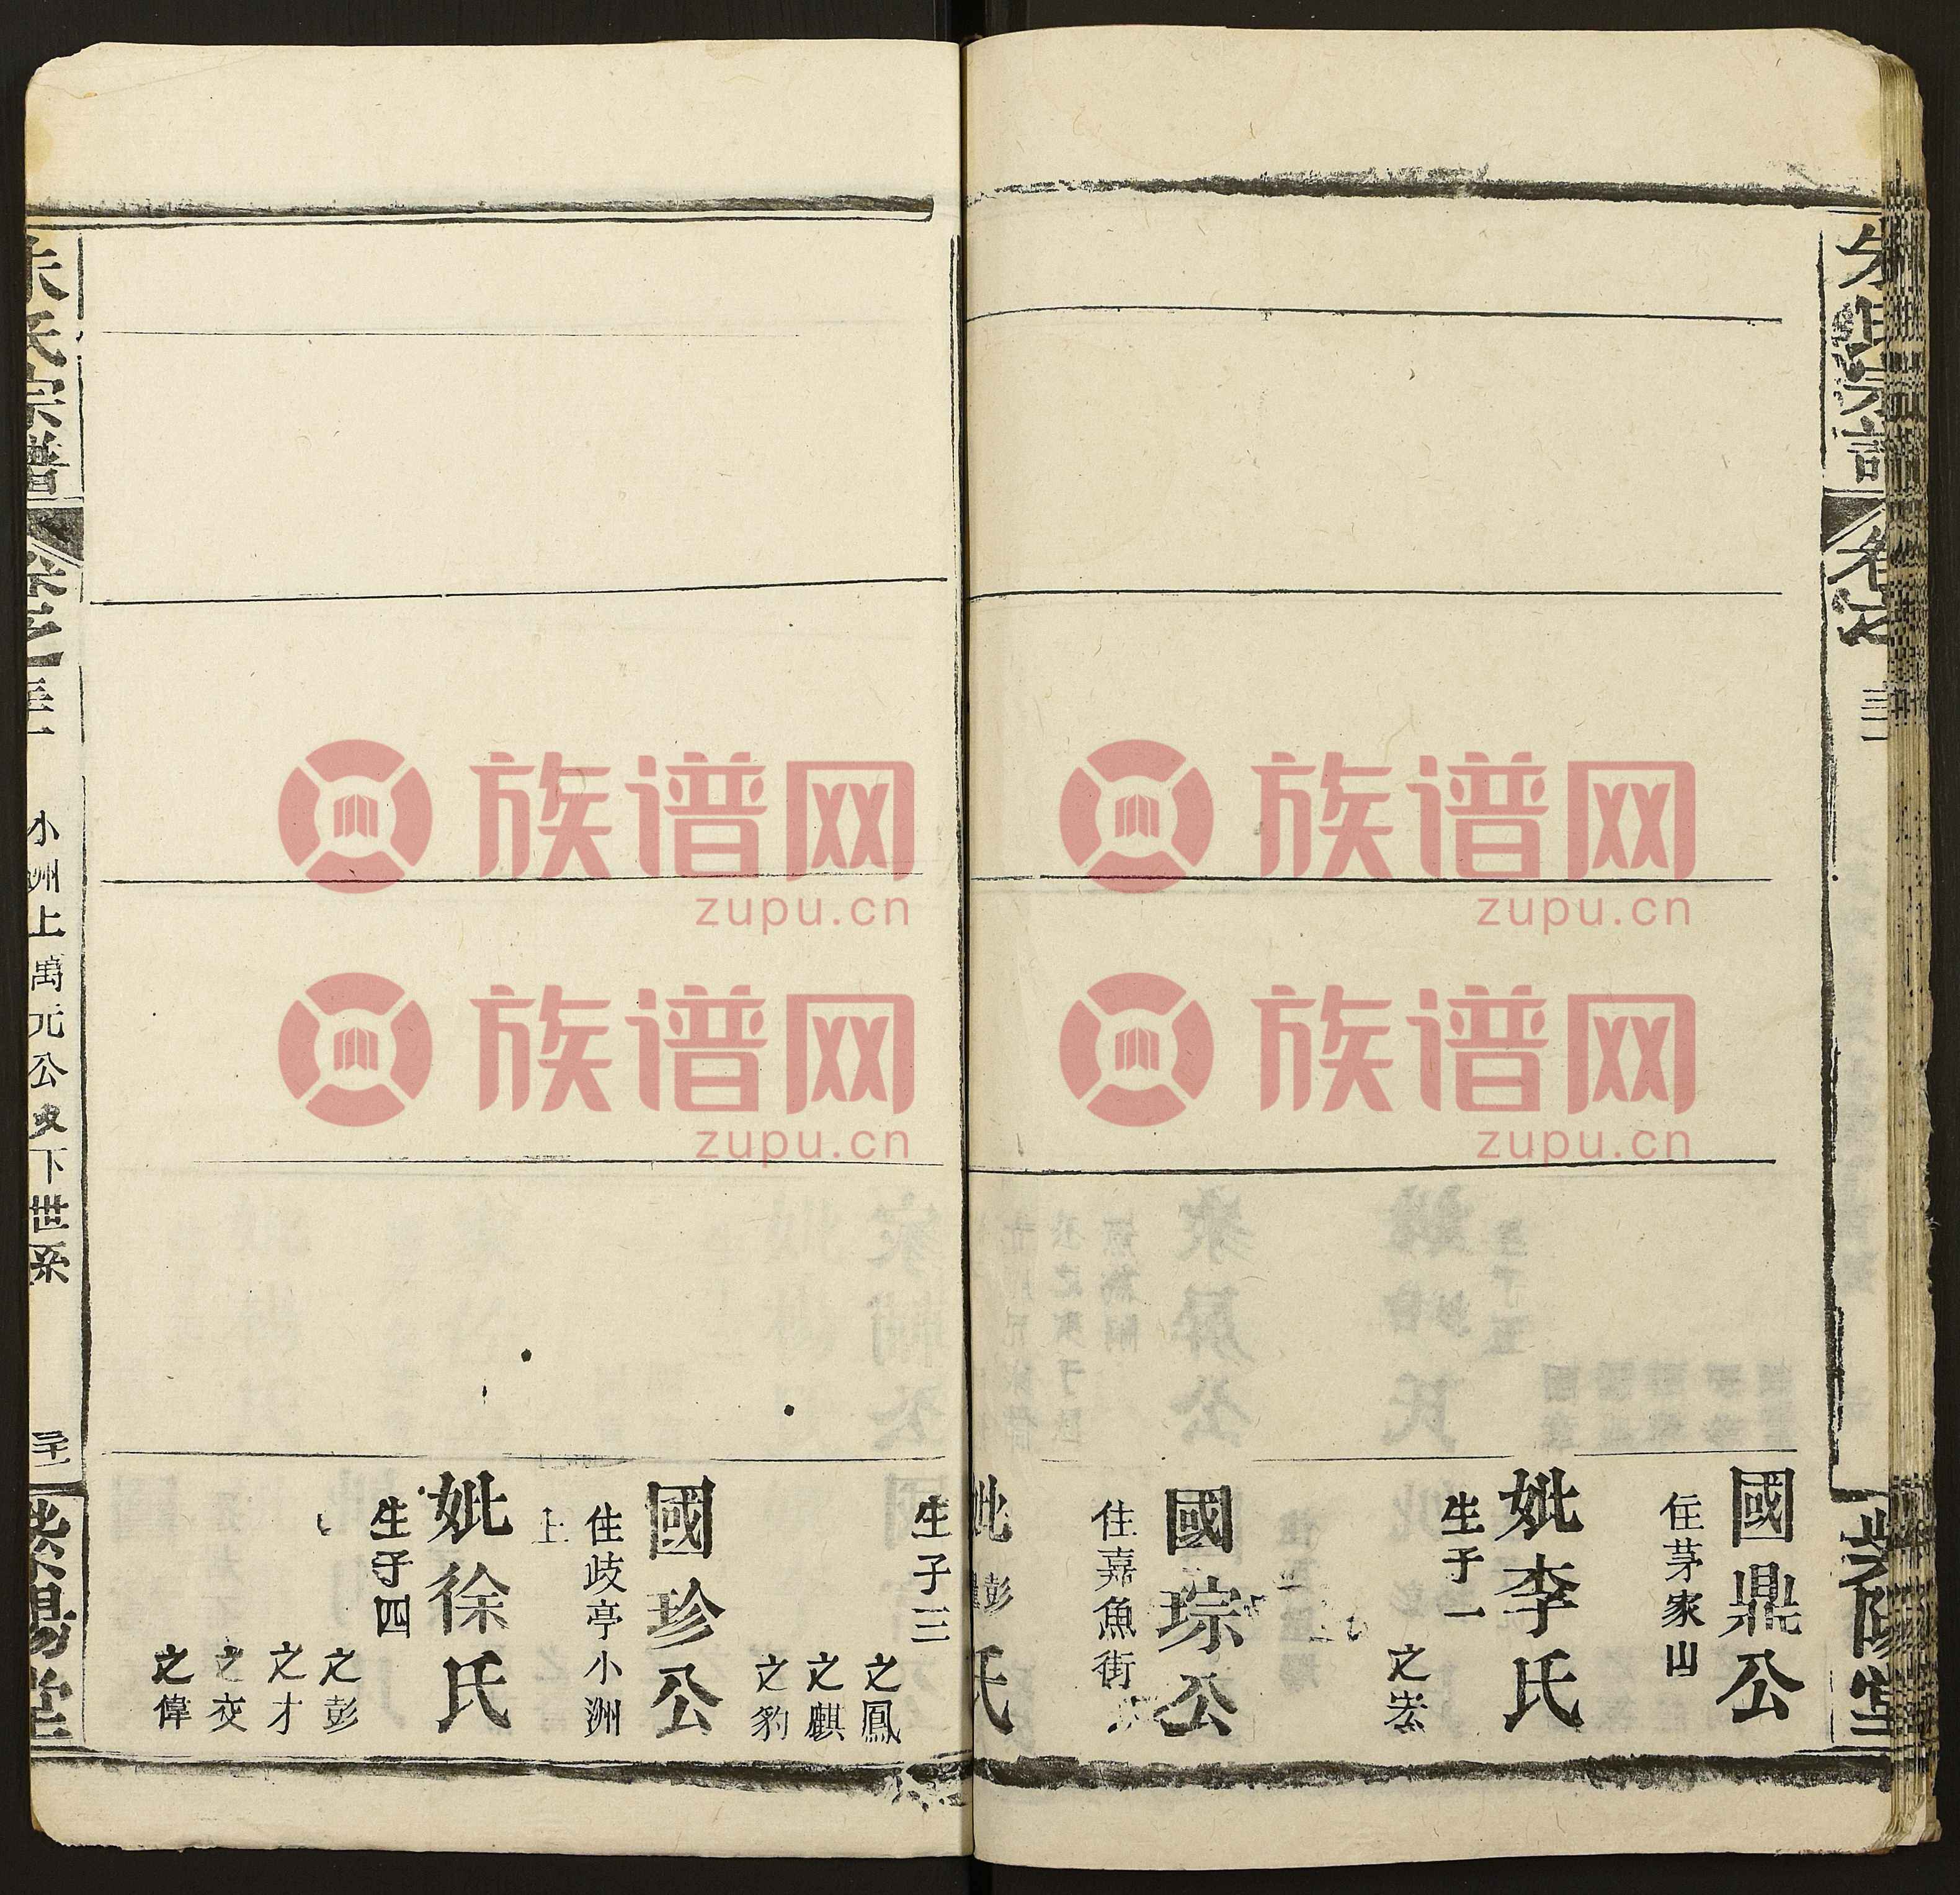 朱氏宗譜
國鼎公
住茅家山
妣李氏
生子一
之宏
國琮公
住嘉魚街
妣彭氏
生子三
之鳳
之麒
之豹
國珍公
住歧亭小洲
上
妣徐氏
生子四
之彭
之才
之交
之偉
朱氏宗譜
小洲上萬元公以下世系
紫陽堂
族谱网
zupu.cn
族谱网
zupu.cn
族谱网
zupu.cn
族谱网
zupu.cn